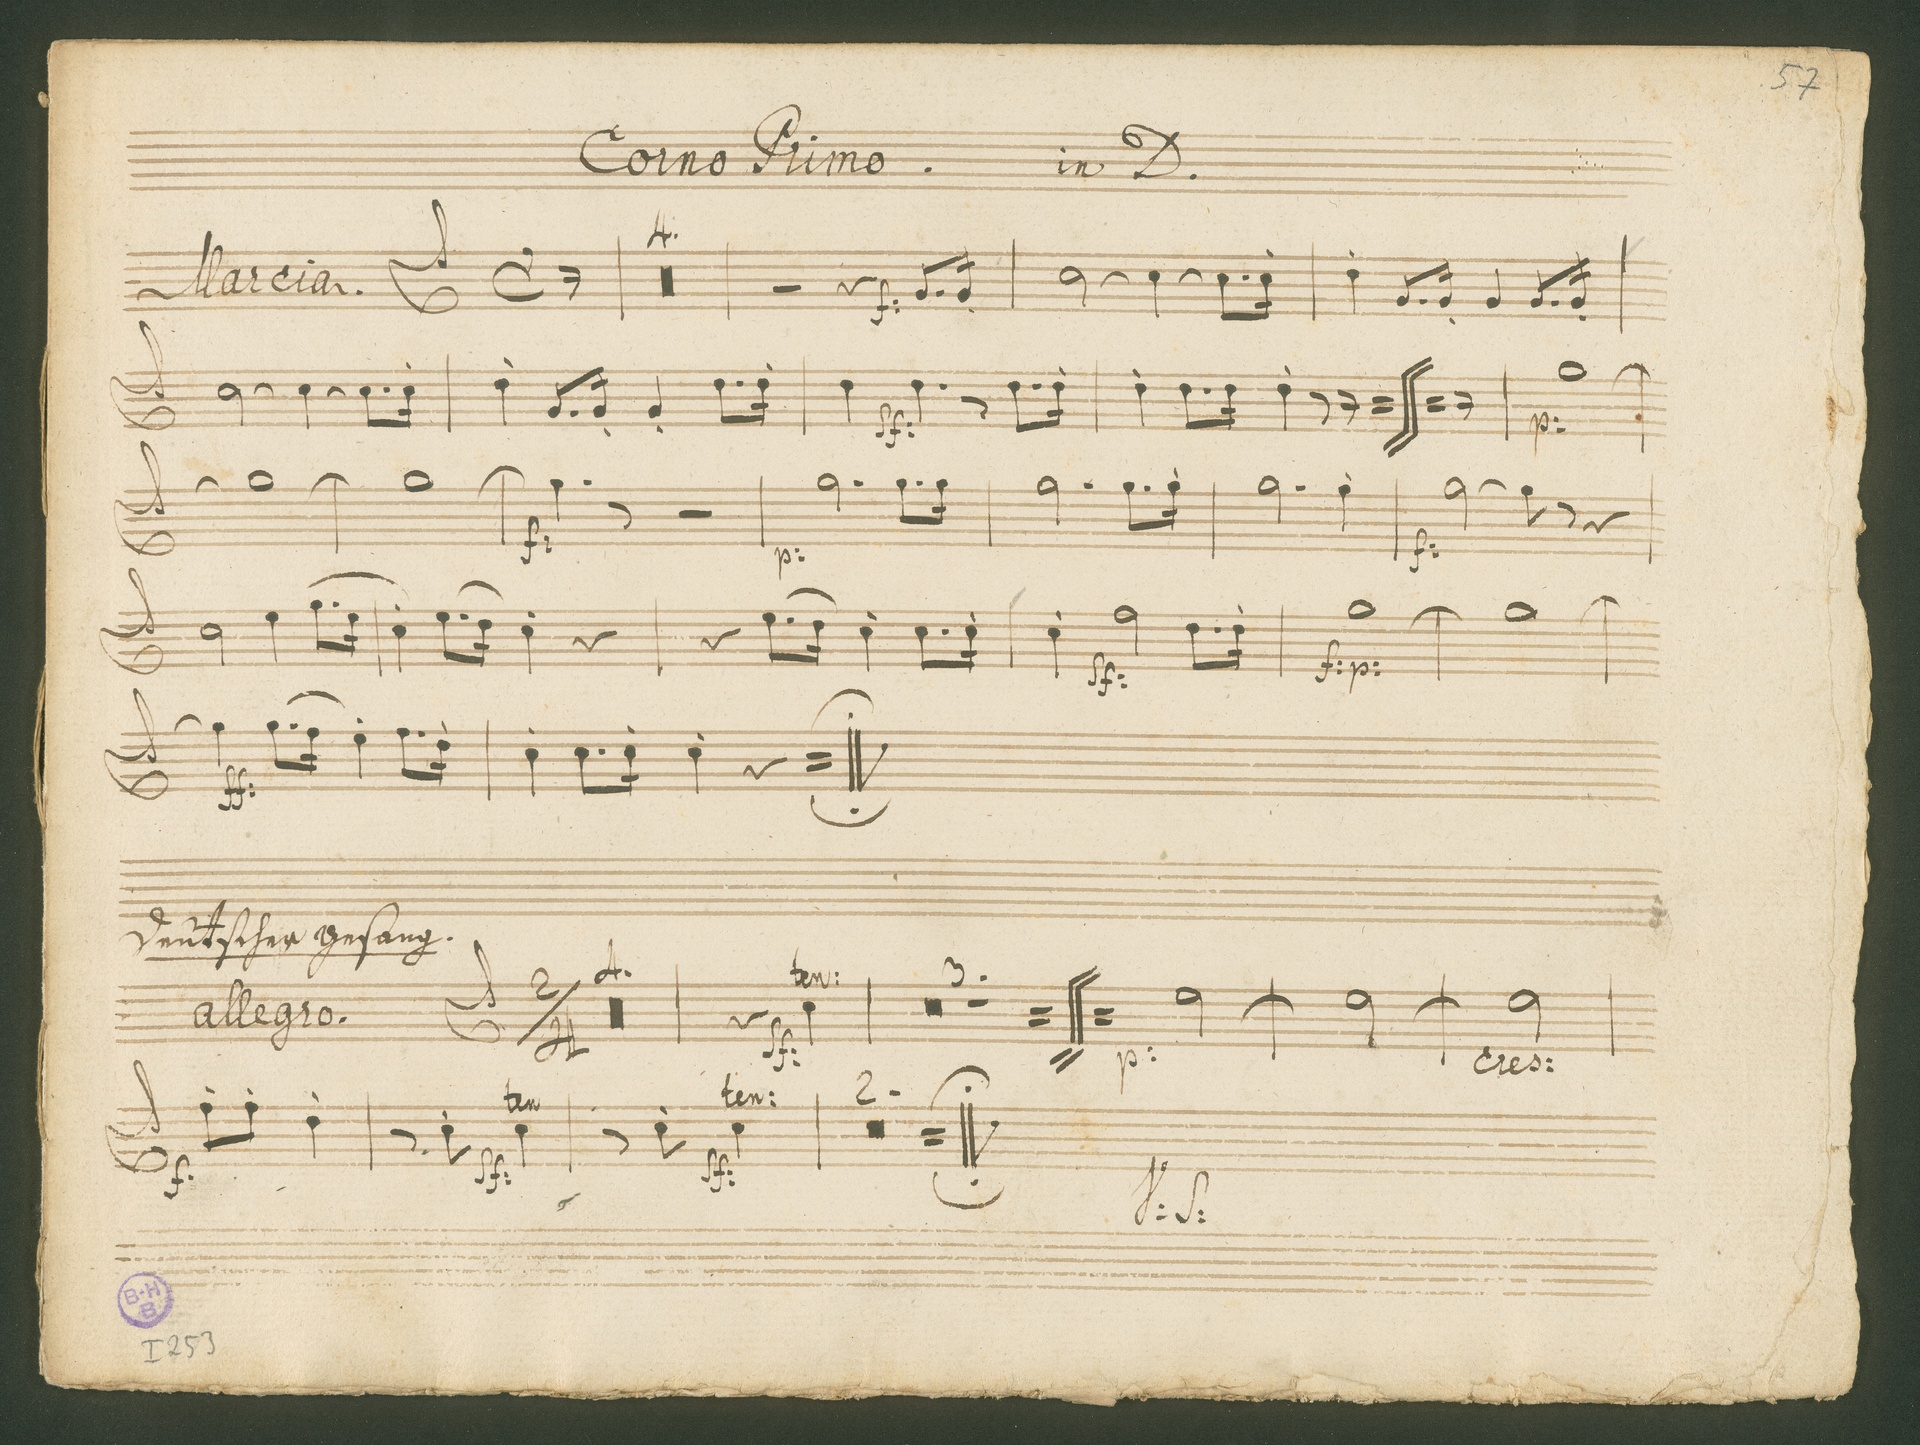 57
Corno Primo. in D.
4.
Marcia.
f:
sf: p:
f: p: f:
sf: f: p:
ff:
Deutscher Gesang.
4. ten: 3.
allegro. 2/4 sf: p: cres:
ten ten: 2.
f. sf: sf:
V: S:
B-H
B
I 253